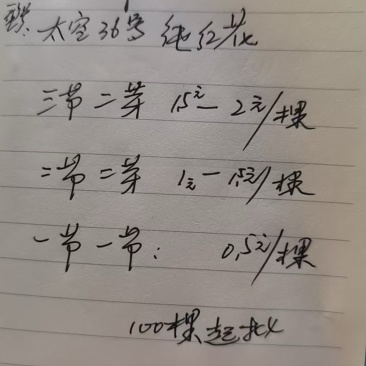 太空36号 纯红花
三节二芽 1.5元—2元/棵
二节二芽 1元—1.5元/棵
一节一节: 0.5元/棵
100棵起批